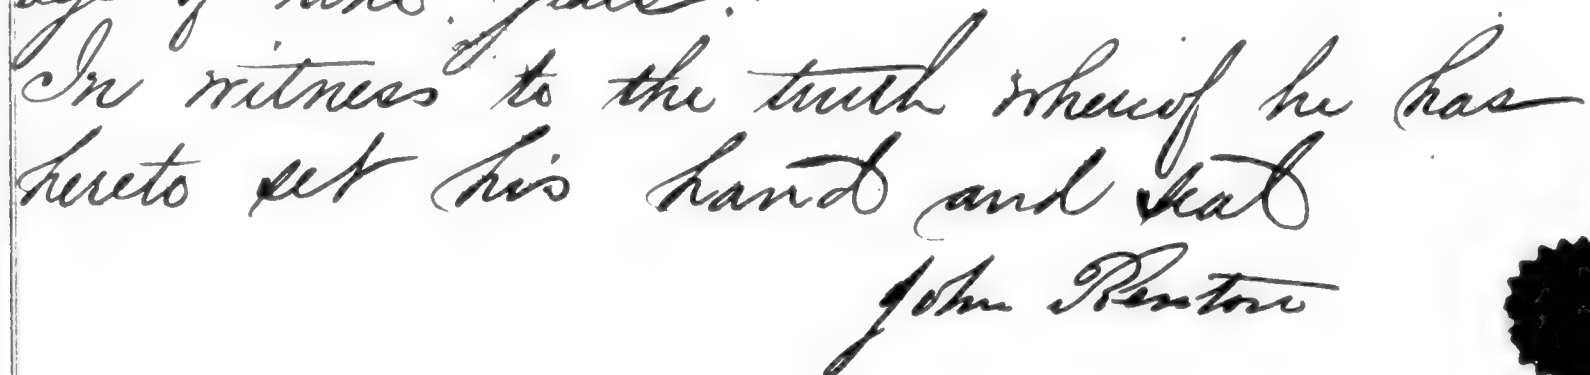 age of nine years.
In witness to the truth whereof he has
hereto set his hand and seal
John Renton